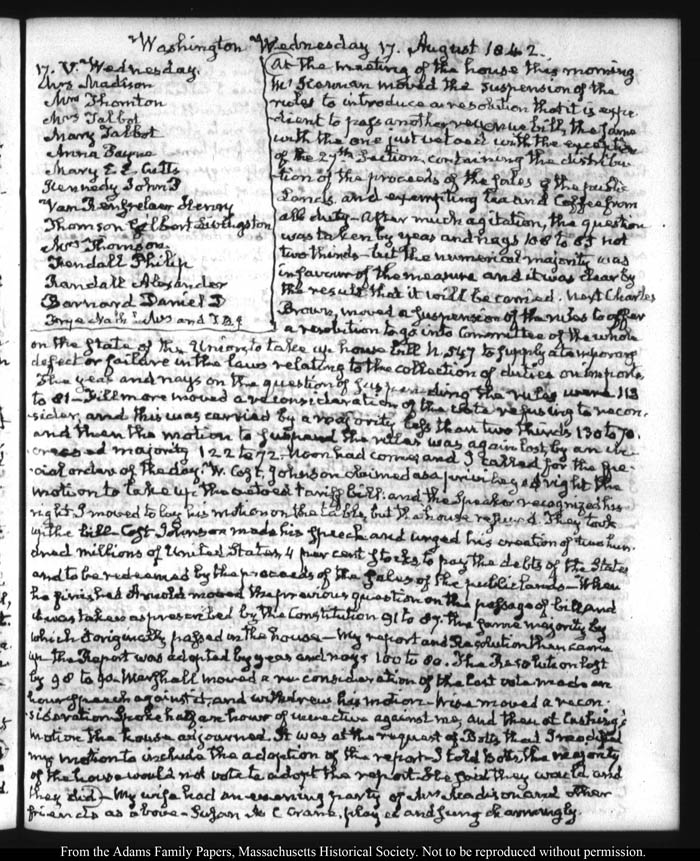 Washington Wednesday 17. August 1842.
17. V. Wednesday.
Mrs Madison
Mrs Thornton
Mrs Talbot
Mary Talbot
Anna Payne
Mary E E Cutts
Kennedy John P
Van Rensselaer Henry
Thomson Gilbert Livingston
Mrs Thomson
Kendall Philip
Randall Alexander
Barnard Daniel D
Frye Nathl Mrs and T B F
At the meeting of the house this morning
Mr Kerman moved the suspension of the
rules to introduce a resolution that it is expe-
dient to pass another revenue bill, the same
with the one just vetoed with the exception
of the 27th Section, containing the distribu-
tion of the proceeds of the sales of the public
Lands, and exempting tea and Coffee from
all duty—After much agitation, the question
was taken by yeas and nays not
two thirds—but the numerical majority was
in favour of the measure and it was clear by
the result that it will be carried. next Charles
Brown, moved a suspension of the rules to offer
a resolution to go into Committee of the whole
on the State of the Union, to take up house bill N. 547 to supply a temporary
defect or failure in the laws relating to the collection of duties on imports.
The yeas and nays on the question of suspending the rules were 113
to 81—Fillmore moved a reconsideration of the vote refusing to recon-
sider, and this was carried by a majority less than two thirds 130 to 70.
and then the motion to suspend the rules was again lost, by an in-
creased majority 122 to 72. Noon had come, and I called for the spe-
cial orders of the day. W. Cost Johnson claimed as a privileged right the
motion to take up the vetoed tariff bill. and the Speaker recognized his
right. I moved to lay his motion on the table, but the house refused. They took
up the bill. Cost Johnson made his Speech and urged his creation of two hun-
dred millions of United States, 4 per cent Stocks to pay the debts of the States
and to be redeemed by the proceeds of the Sales of the public lands—When
he finished Arnold moved the previous question on the passage of bill, and
it was taken as prescribed by the Constitution 91 to 87. the same majority by
which it originally passed in the house—My report and Resolution then came
up the Report was adopted by yeas and nays 100 to 80. The Resolution lost
by 98 to 90. Marshall moved a re-consideration of the last vote made an
hour speech against it, and withdrew his motion. Wise moved a recon-
sideration Spoke half an hour of invective against me, and then at Cushing's
motion the house adjourned. It was at the request of Botts, that I modified
my motion to include the adoption of the report. I told Botts, the majority
of the house would not vote to adopt the report. He said they would and
they did—My wife had an evening party of Mrs Madison and other
friends as above—Susan M. C Crane, played and sung charmingly.
From the Adams Family Papers, Massachusetts Historical Society. Not to be reproduced without permission.